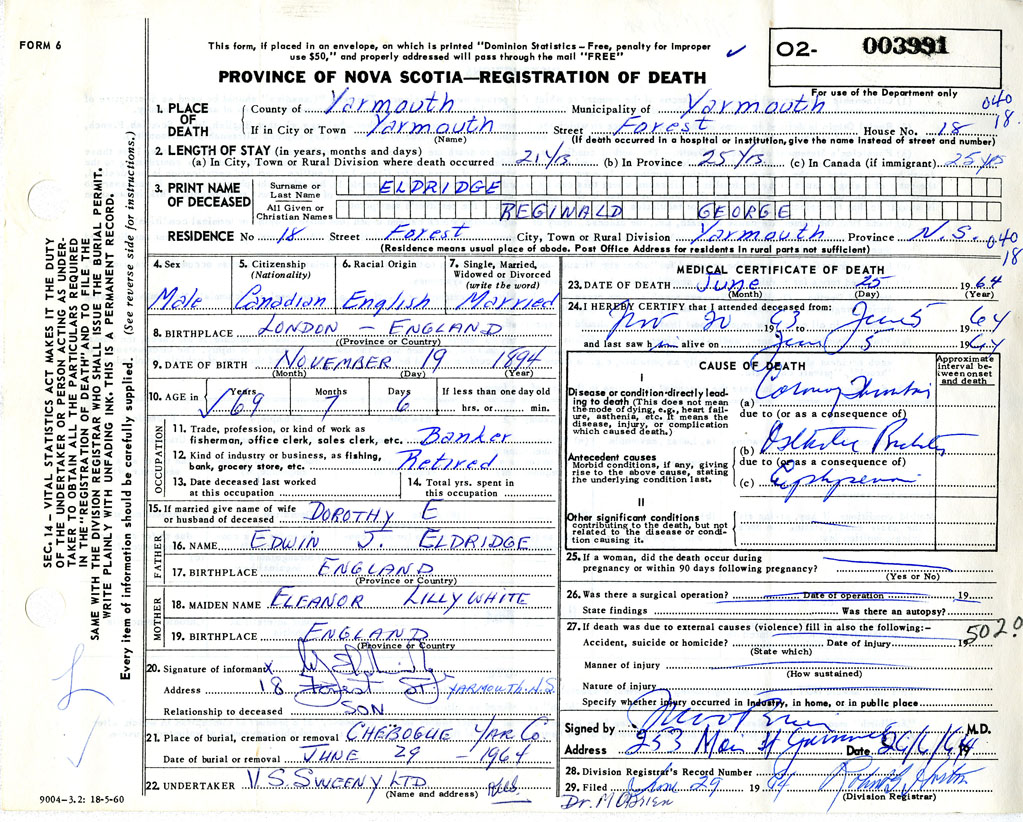 FORM 6
This form, if placed in an envelope, on which is printed "Dominion Statistics – Free, penalty for improper
use $50," and properly addressed will pass through the mail "FREE"
✓
O2- 003991
For use of the Department only
PROVINCE OF NOVA SCOTIA—REGISTRATION OF DEATH
SEC. 14 – VITAL STATISTICS ACT MAKES IT THE DUTY
OF THE UNDERTAKER OR PERSON ACTING AS UNDER-
TAKER TO OBTAIN ALL THE PARTICULARS REQUIRED
IN THE "REGISTRATION OF DEATH" AND TO FILE THE
SAME WITH THE DIVISION REGISTRAR WHO SHALL ISSUE THE BURIAL PERMIT.
WRITE PLAINLY WITH UNFADING INK. THIS IS A PERMANENT RECORD.
Every item of information should be carefully supplied. (See reverse side for instructions.)
1. PLACE OF DEATH
County of Yarmouth Municipality of Yarmouth 040
If in City or Town Yarmouth Street Forest House No. 18 18.
(Name) (If death occurred in a hospital or institution, give the name instead of street and number)
2. LENGTH OF STAY (in years, months and days)
(a) In City, Town or Rural Division where death occurred 21 Yrs (b) In Province 25 Yrs (c) In Canada (if immigrant) 25 yrs
3. PRINT NAME OF DECEASED
Surname or Last Name ELDRIDGE
All Given or Christian Names REGINALD GEORGE
RESIDENCE No 18 Street Forest City, Town or Rural Division Yarmouth Province N.S. 040
(Residence means usual place of abode. Post Office Address for residents in rural parts not sufficient) 18
4. Sex
Male
5. Citizenship (Nationality)
Canadian
6. Racial Origin
English
7. Single, Married, Widowed or Divorced (write the word)
Married
8. BIRTHPLACE LONDON – ENGLAND
(Province or Country)
9. DATE OF BIRTH NOVEMBER 19 1894
(Month) (Day) (Year)
10. AGE in Years Months Days If less than one day old
✓ 69 7 6 hrs. or min.
OCCUPATION
11. Trade, profession, or kind of work as
fisherman, office clerk, sales clerk, etc. Banker
12. Kind of industry or business, as fishing,
bank, grocery store, etc. Retired
13. Date deceased last worked at this occupation
14. Total yrs. spent in this occupation
15. If married give name of wife
or husband of deceased DOROTHY E
FATHER
16. NAME EDWIN J. ELDRIDGE
17. BIRTHPLACE ENGLAND
(Province or Country)
MOTHER
18. MAIDEN NAME ELEANOR LILLYWHITE
19. BIRTHPLACE ENGLAND
(Province or Country
20. Signature of informant X
Address 18 Forest St YARMOUTH. N.S
Relationship to deceased SON
21. Place of burial, cremation or removal CHEBOGUE YAR. CO.
Date of burial or removal JUNE 29 – 1964
22. UNDERTAKER V.S. SWEENY LTD
(Name and address)
9004–3.2: 18-5-60
MEDICAL CERTIFICATE OF DEATH
23. DATE OF DEATH June 25 1964
(Month) (Day) (Year)
24. I HEREBY CERTIFY that I attended deceased from:
Nov 20 1963 to June 5 1964
and last saw him alive on June 5 1964
CAUSE OF DEATH
Approximate interval between onset and death
I
Disease or condition directly lead-
ing to death (This does not mean
the mode of dying, e.g., heart fail-
ure, asthenia, etc. It means the
disease, injury, or complication
which caused death.)
(a) Coronary Thrombosis
due to (or as a consequence of)
Antecedent causes
Morbid conditions, if any, giving
rise to the above cause, stating
the underlying condition last.
(b)
due to (or as a consequence of)
(c) Emphysema
II
Other significant conditions
contributing to the death, but not
related to the disease or condi-
tion causing it.
25. If a woman, did the death occur during
pregnancy or within 90 days following pregnancy?
(Yes or No)
26. Was there a surgical operation? Date of operation 19
State findings Was there an autopsy?
27. If death was due to external causes (violence) fill in also the following:–
Accident, suicide or homicide? Date of injury 19 5020
(State which)
Manner of injury
(How sustained)
Nature of injury
Specify whether injury occurred in Industry, in home, or in public place
Signed by M.D.
Address 253 Main St Date 26/6/64 19
28. Division Registrar's Record Number
29. Filed June 29 1964
(Division Registrar)
Dr. M OBRIEN